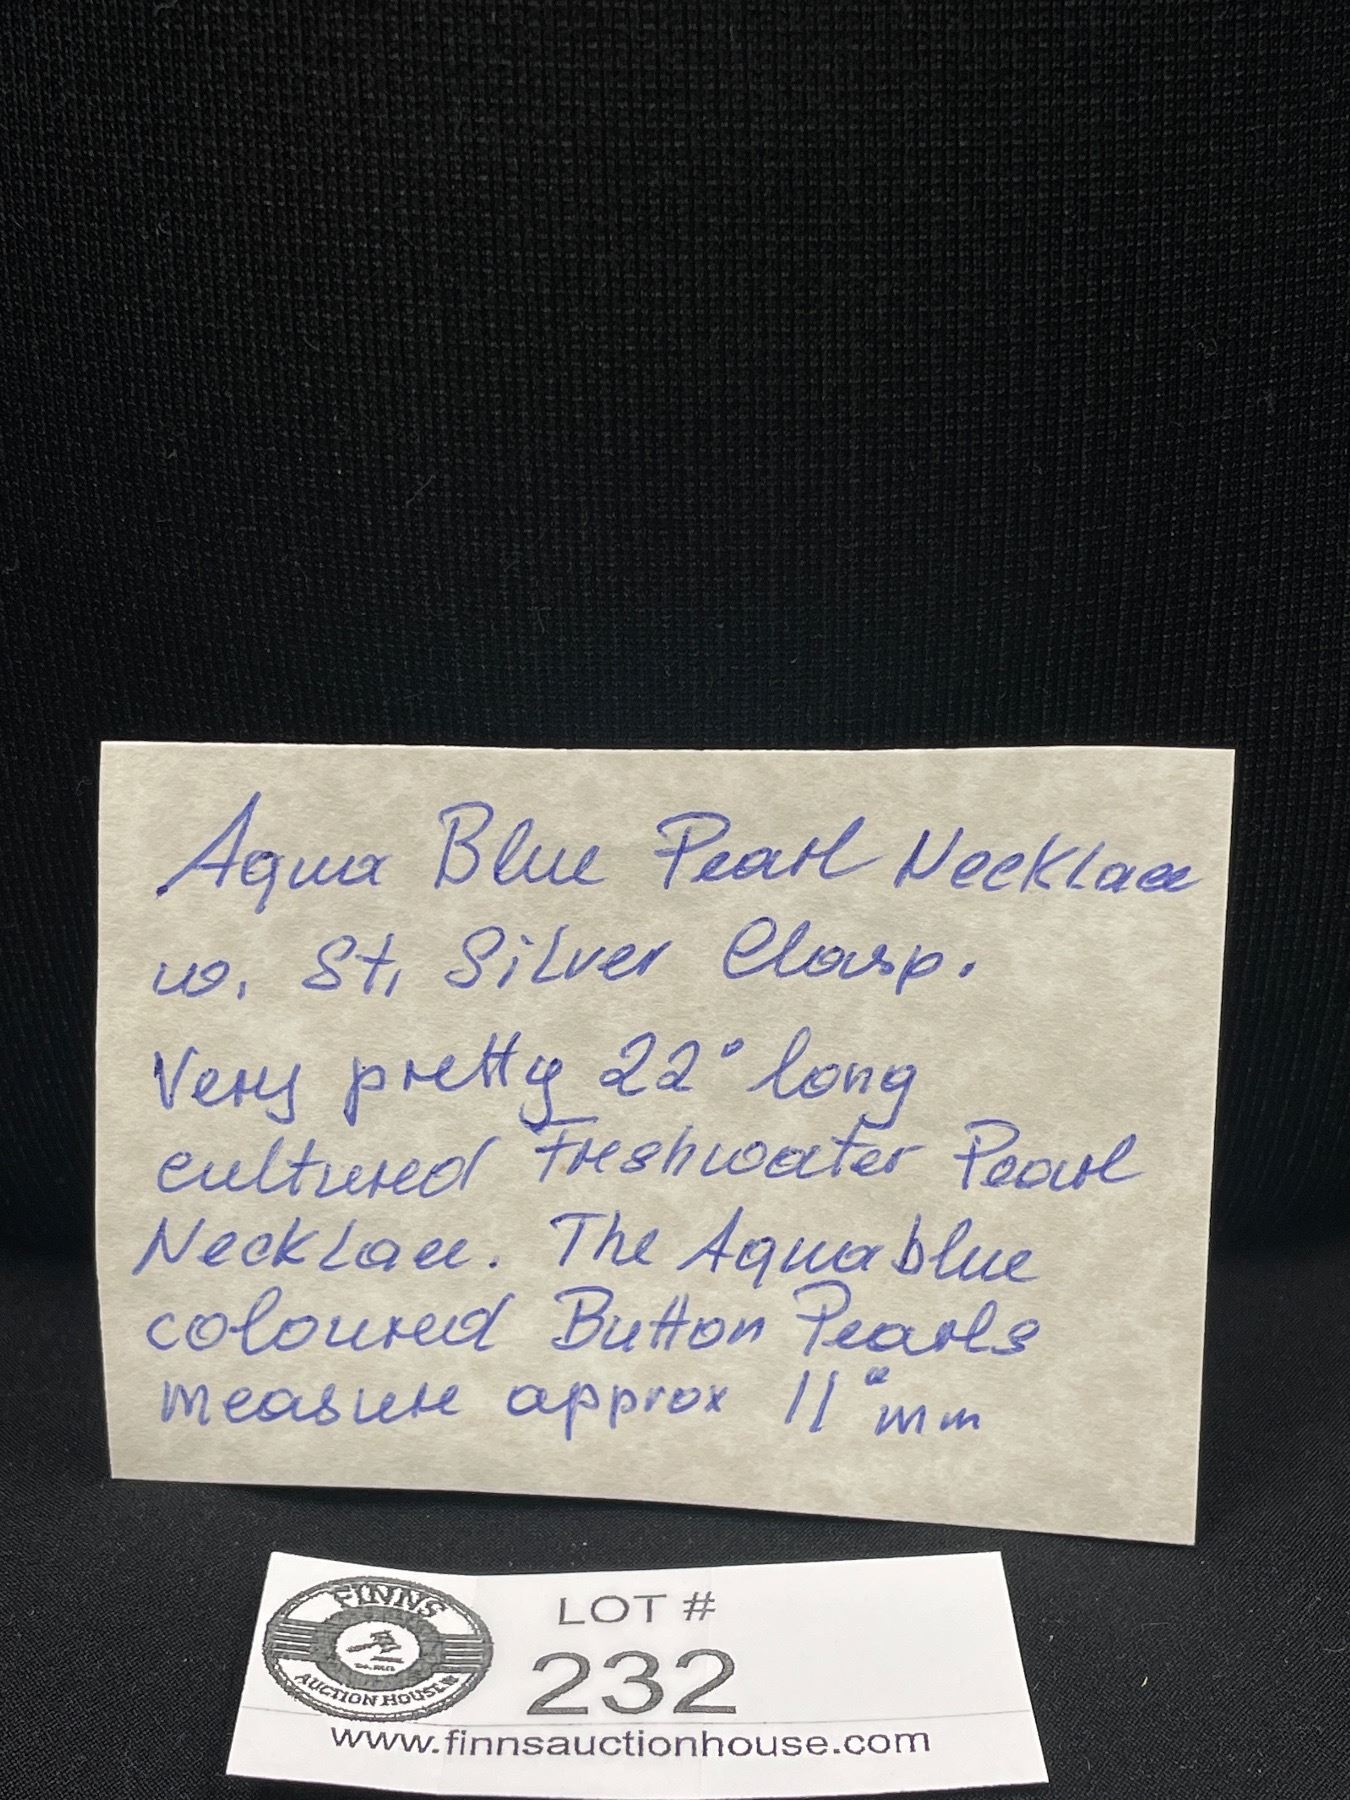 Aqua Blue Pearl Necklace
w. St. Silver Clasp.
Very pretty 22" long
cultured Freshwater Pearl
Necklace. The Aqua blue
coloured Button Pearls
measure approx 11" mm
FINNS
AUCTION HOUSE
LOT #
232
www.finnsauctionhouse.com